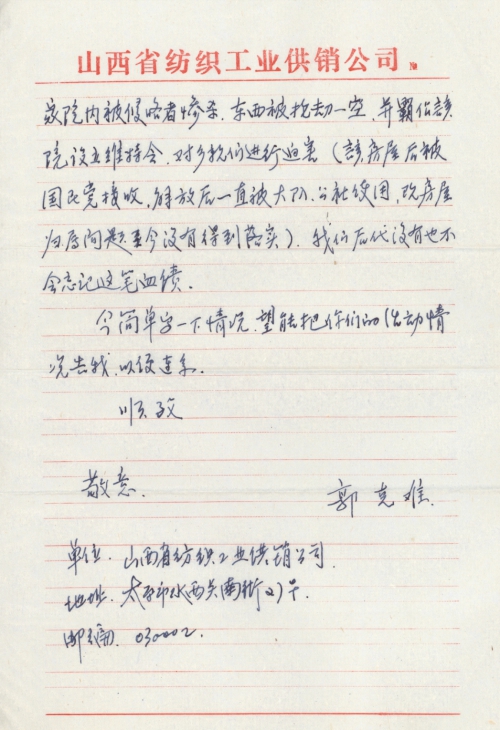 山西省纺织工业供销公司 №
家院内被侵略者惨杀，东西被抢劫一空，并霸佔該
院设立维持会，对乡民们进行迫害（該房屋后被
国民党接收，解放后一直被大队、公社使用，改房屋
归属问题至今没有得到落实）。我们后代没有也不
会忘记这笔血债。
今简单字一下情况，望能把你们的活动情
况告我，以便连系。
顺致
敬意。
郭克难
单位．山西省纺织工业供销公司
地址．太原市水西关南街27号
邮编．030002．